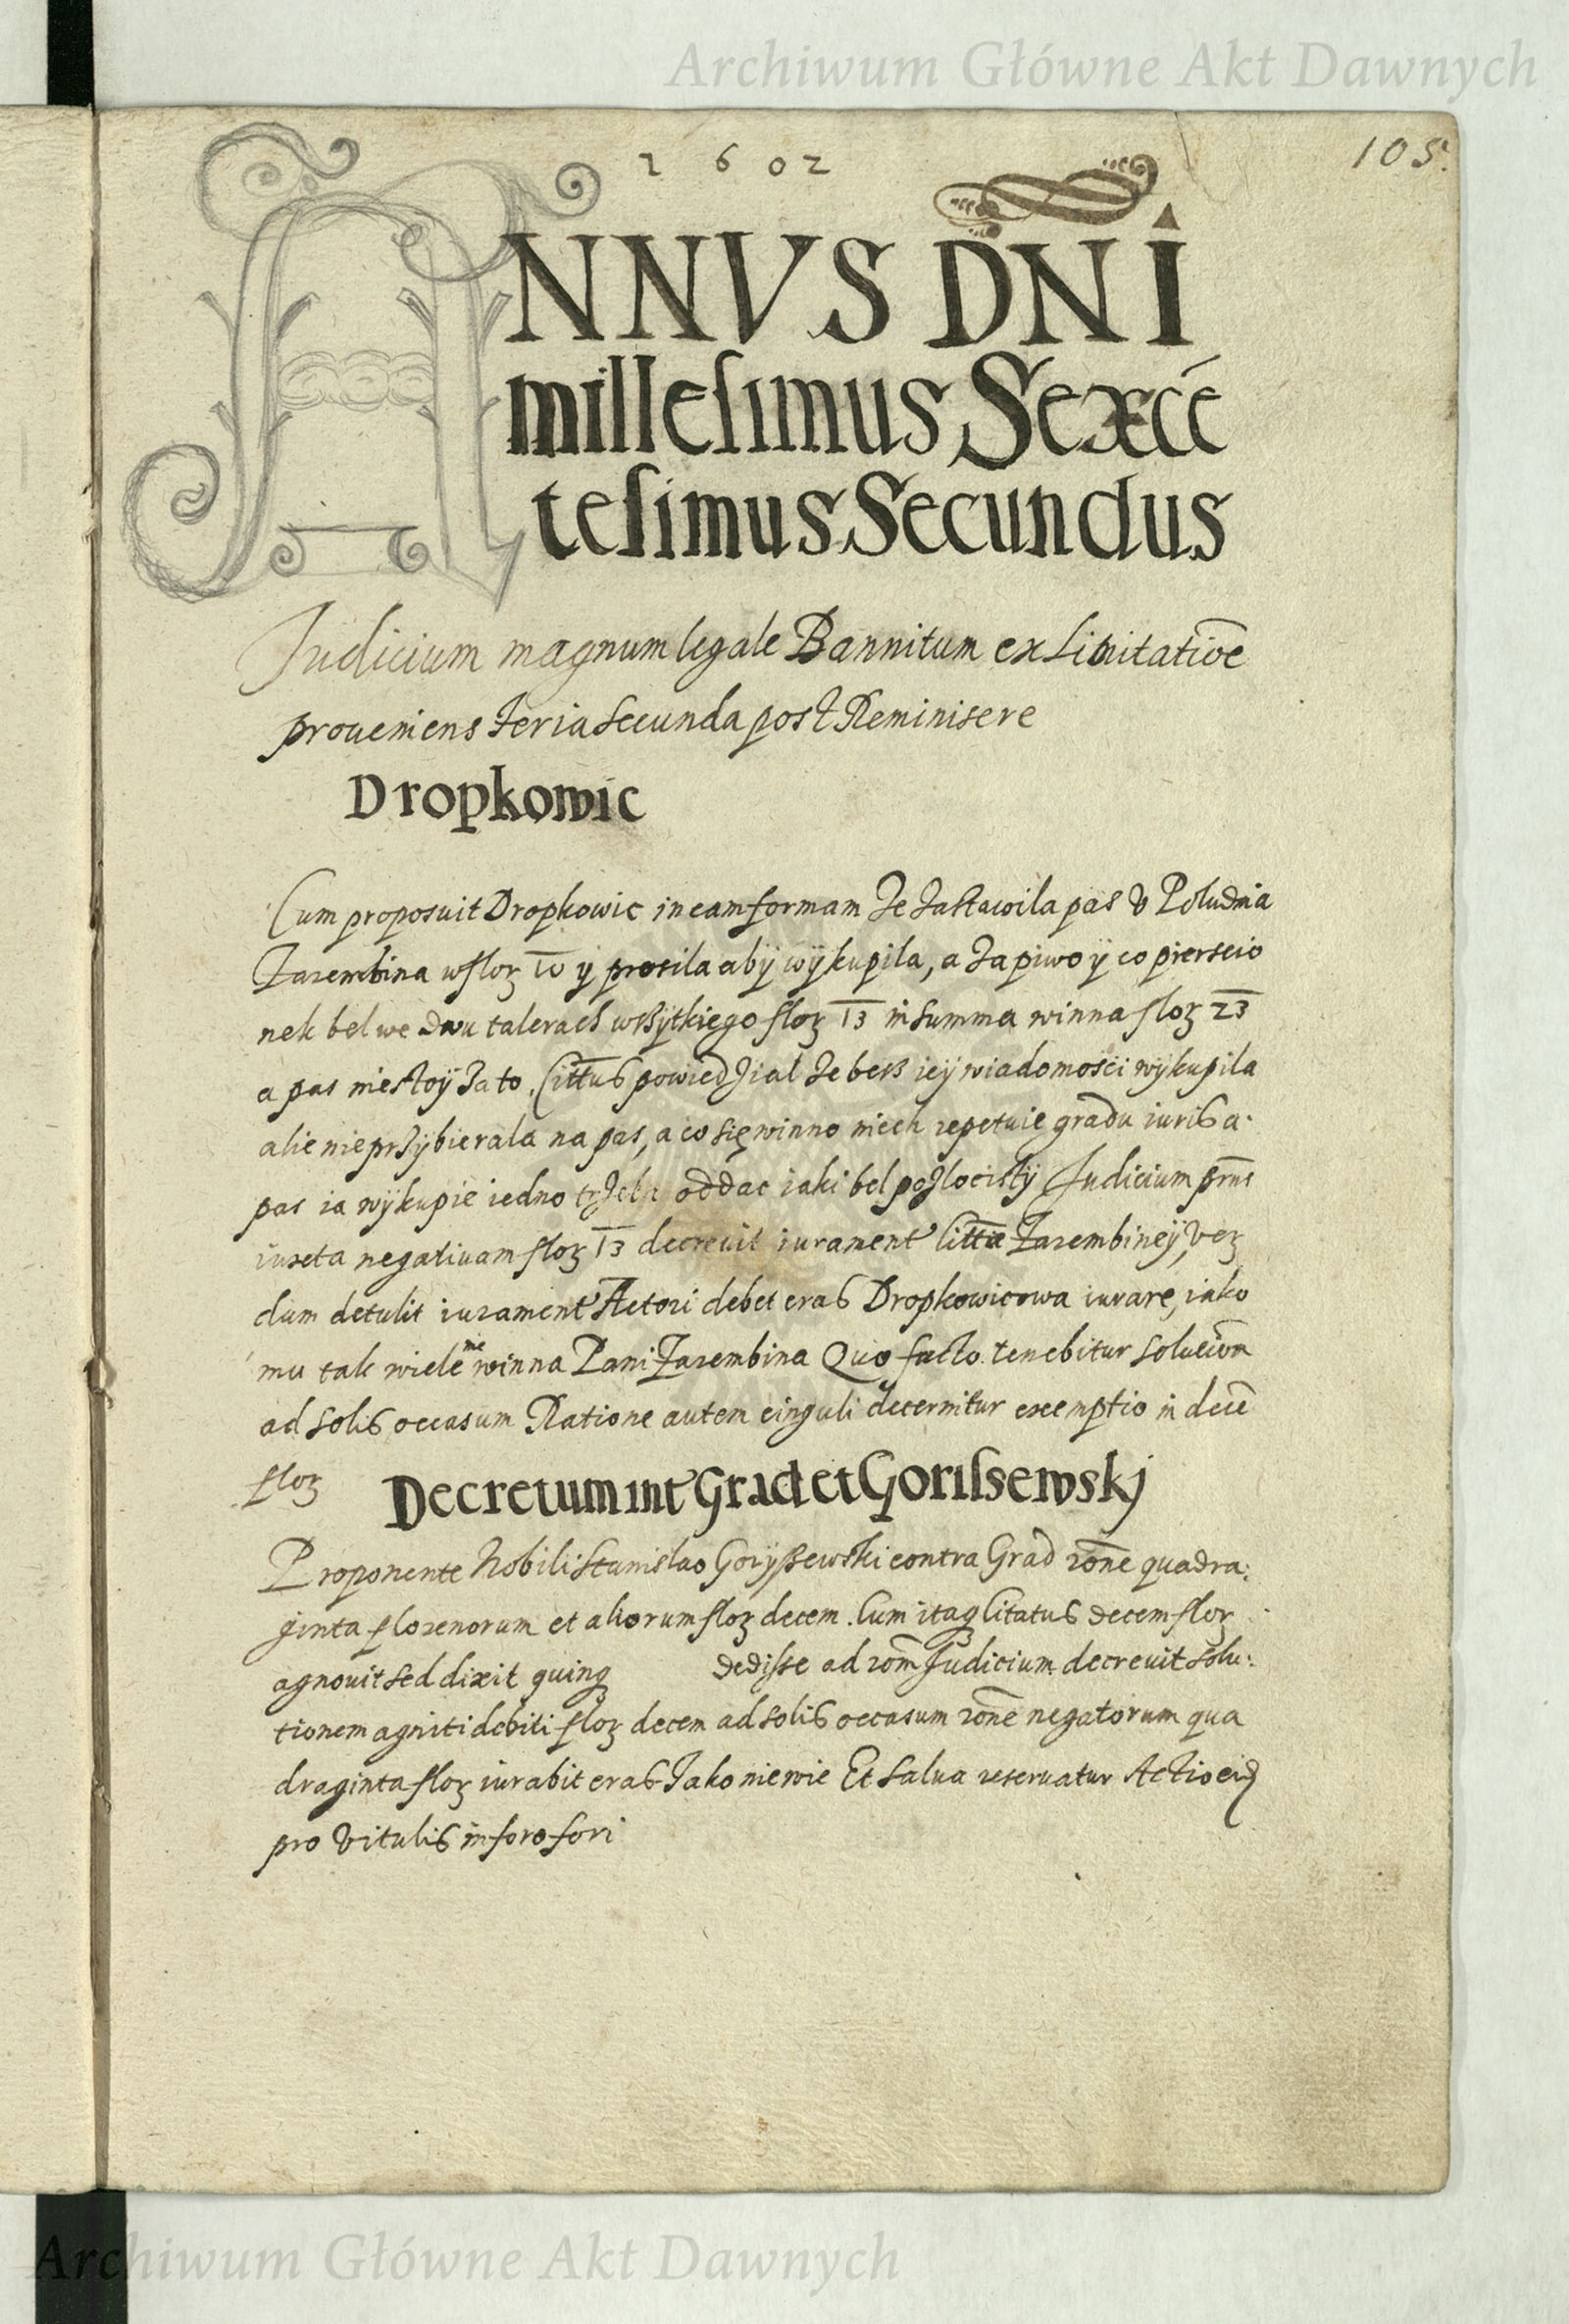 Archiwum Główne Akt Dawnych
1602
105.
ANNVS DNI
millesimus Sexcē
tesimus Secundus
Judicium magnum legale Bannitum ex Limitatioē
proueniens feria secunda post Reminisere
Dropkowic
Cum proposuit Dropkowic in eam formam Ze Zastawila pas v Poludnia
Zarembina w flor 10 ÿ prosila abÿ wÿkupila, a Za piwo ÿ co pierscio
nek bel we dwu talerach wszÿtkiego flor 13 in summa winna flor 23
a pas niestoÿ Za to. Citt̄us powiedZial Ze besz ieÿ wiadomosci wÿkupila
alie nieprZÿbierala na pas, a co się winno niech repetuie gradu iuris a
pas ia wÿkupie iedno trZeba oddac iaki bel poZlocistÿ Judicium prn̄s
iuxta negatiuam flor 13 decreuit iurament Citt̄ae Zarembineÿ, ver
dum detulit iurament Actori debet cras Dropkowicowa iurare, iako
mu tak wiele nie winna Pani Zarembina Quo facto tenebitur soluc̄on
ad solis occasum Ratione autem cinguli decernitur exemptio in decē
flor
Decretum int Grad et Gorissewskj
Proponente Nobili Stanislao Gorÿszewski contra Grad rōne quadra:
ginta florenorum et aliorum flor decem. Cum itaq Citatus decem flor
agnouit sed dixit quinq dedisse ad rōm Judicium decreuit solu:
tionem agniti debiti flor decem ad solis occasum rōne negatorum qua
draginta flor iurabit cras Jako nie wie Et salua reseruatur Actio eid
pro vitulis in foro fori
Archiwum Główne Akt Dawnych